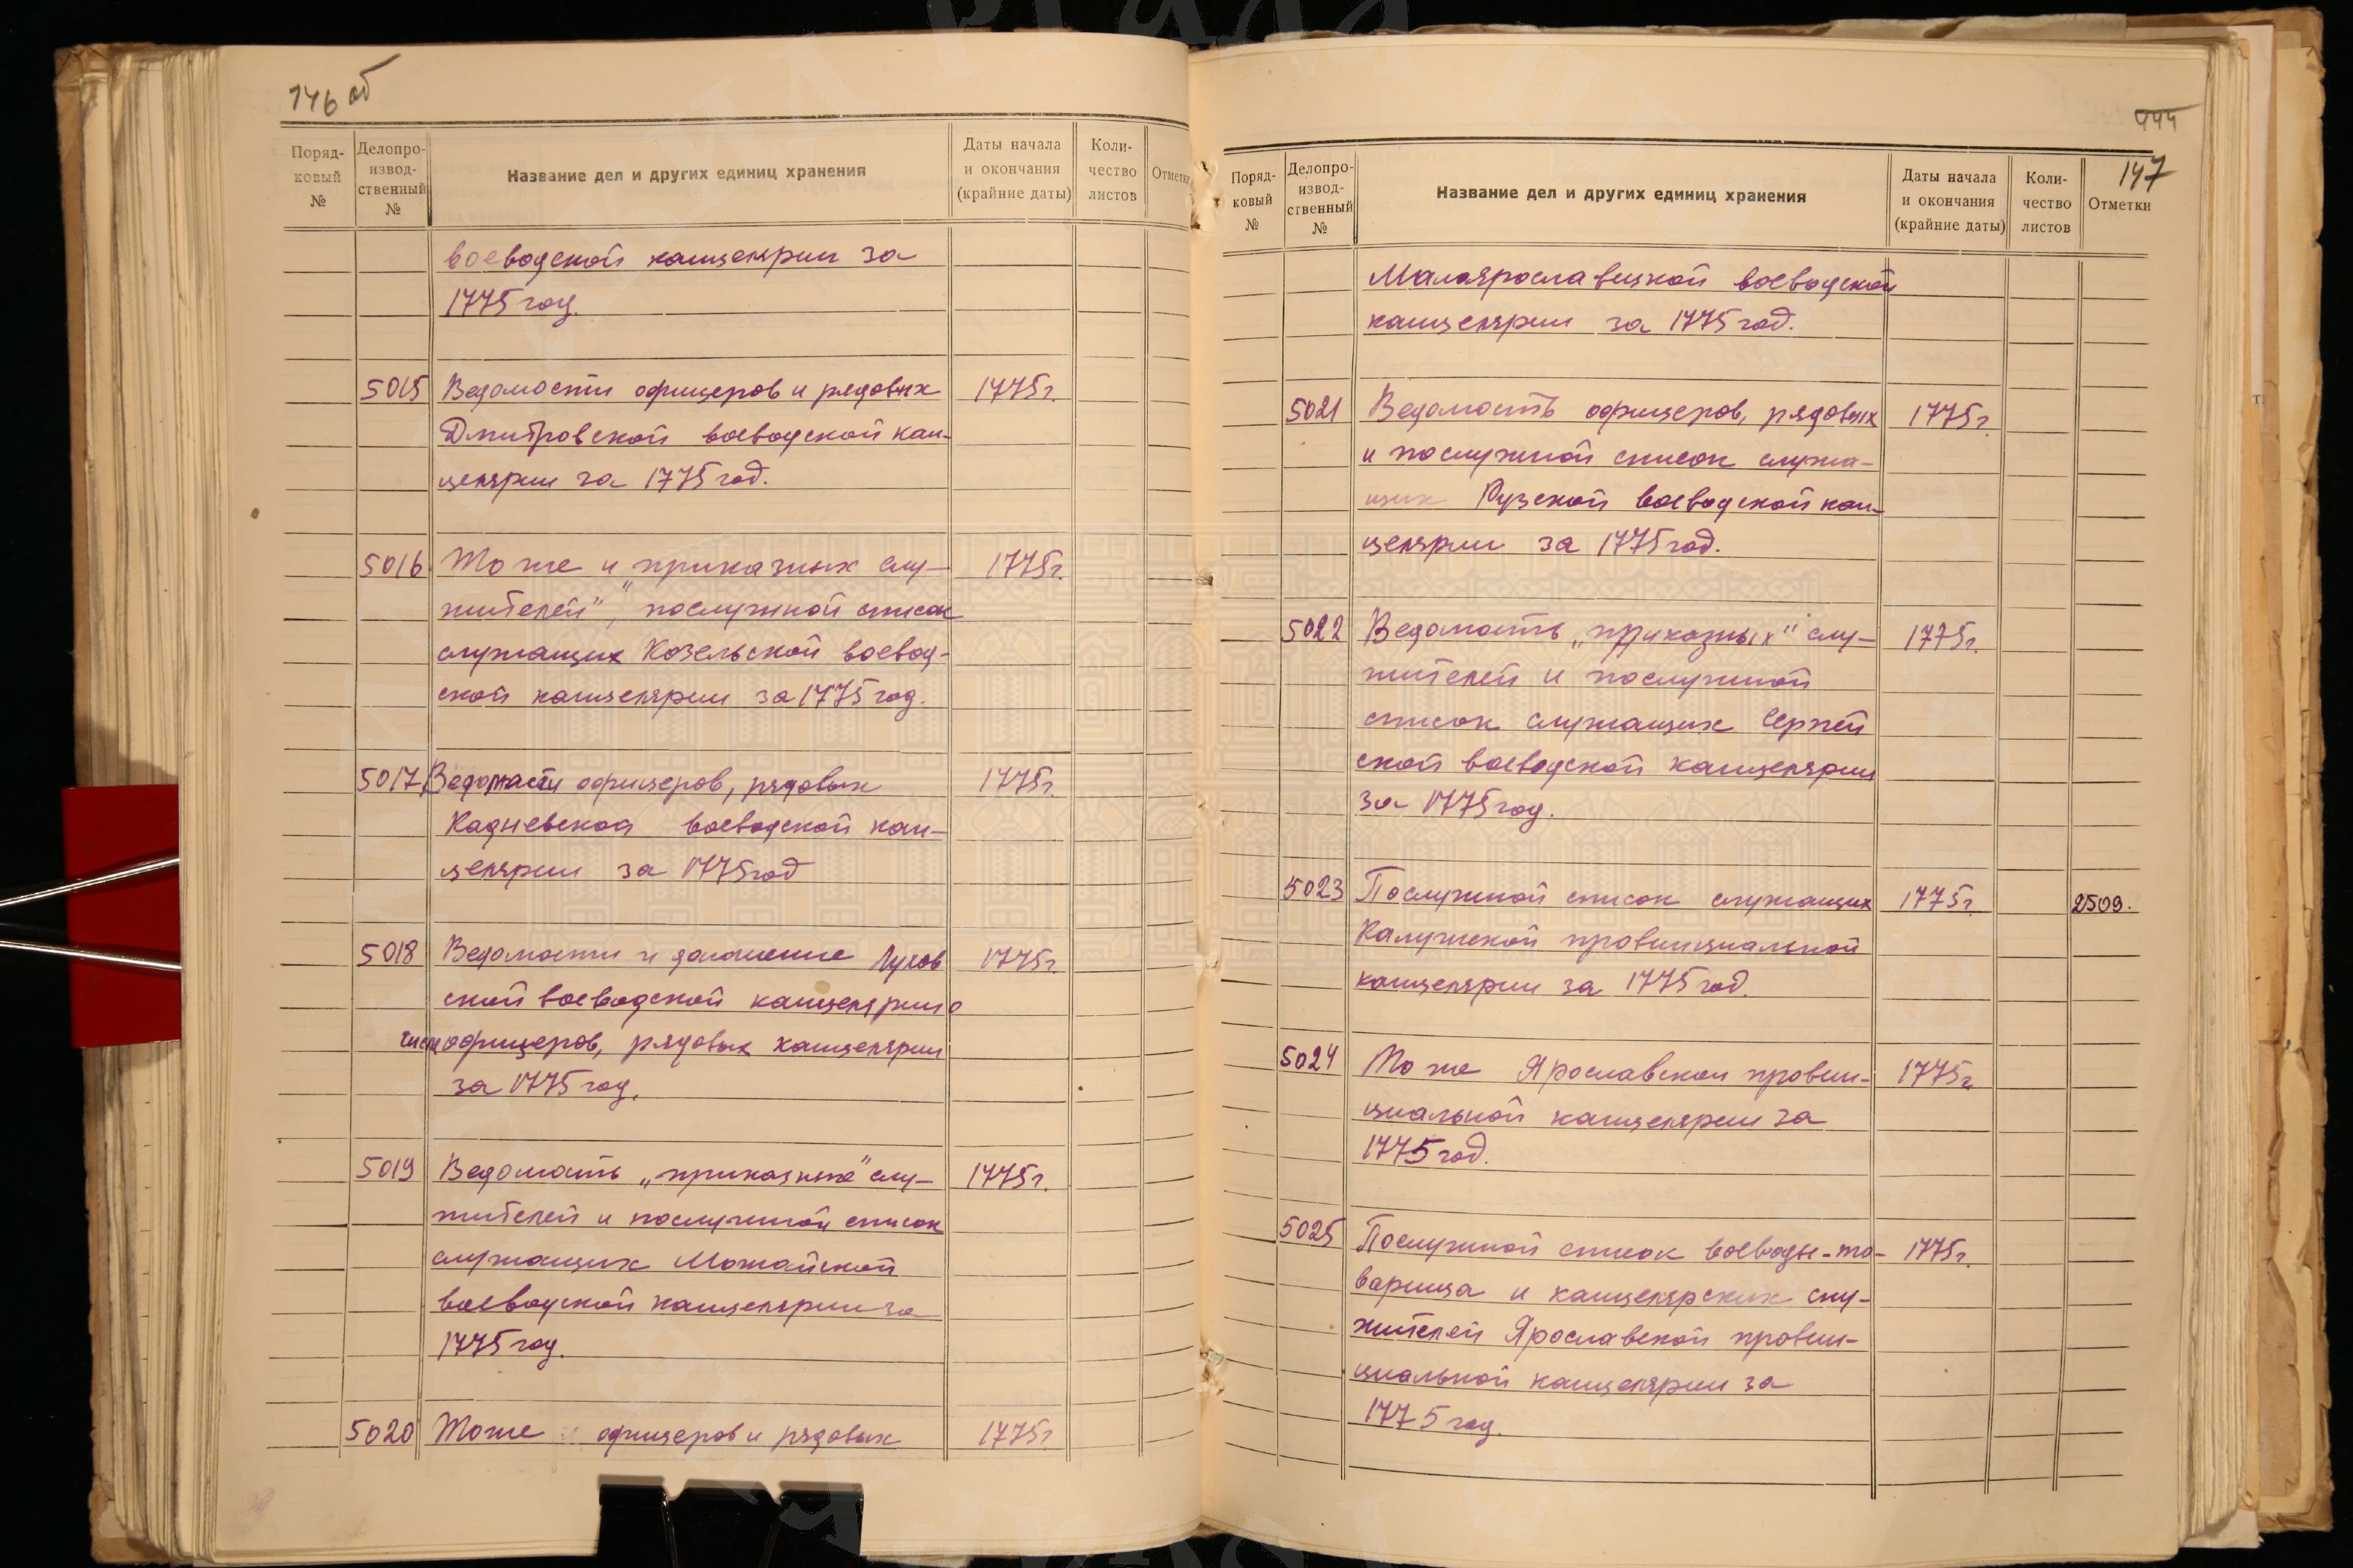 146 об
Поряд-
ковый
№
Делопро-
извод-
ственный
№
Название дел и других единиц хранения
Даты начала
и окончания
(крайние даты)
Коли-
чество
листов
Отметки
воеводской канцелярии за
1775 год.
5015 Ведомости офицеров и рядовых 1775г.
Дмитровской воеводской кан-
целярии за 1775 год.
5016 То же и „приказных слу- 1775г.
жителей", послужной список
служащих Козельской воевод-
ской канцелярии за 1775 год.
5017 Ведомости офицеров, рядовых 1775г.
Кадуевской воеводской кан-
целярии за 1775 год
5018 Ведомости и доношение Лухов 1775г.
ской воеводской канцелярии о
числе офицеров, рядовых канцелярии
за 1775 год.
5019 Ведомость „приказных" слу- 1775г.
жителей и послужной список
служащих Можайской
воеводской канцелярии за
1775 год.
5020 То же офицеров и рядовых 1775г
147
Поряд-
ковый
№
Делопро-
извод-
ственный
№
Название дел и других единиц хранения
Даты начала
и окончания
(крайние даты)
Коли-
чество
листов
Отметки
Малоярославецкой воеводской
канцелярии за 1775 год.
5021 Ведомость офицеров, рядовых 1775г.
и послужной список служа-
щих Рузской воеводской кан-
целярии за 1775 год.
5022 Ведомость „приказных" слу- 1775г.
жителей и послужной
список служащих Серпей
ской воеводской канцелярии
за 1775 год.
5023 Послужной список служащих 1775г. 2509.
Калужской провинциальной
канцелярии за 1775 год.
5024 То же Ярославской провин- 1775г.
циальной канцелярии за
1775 год.
5025 Послужной список воеводы-то- 1775г.
варища и канцелярских слу-
жителей Ярославской провин-
циальной канцелярии за
1775 год.